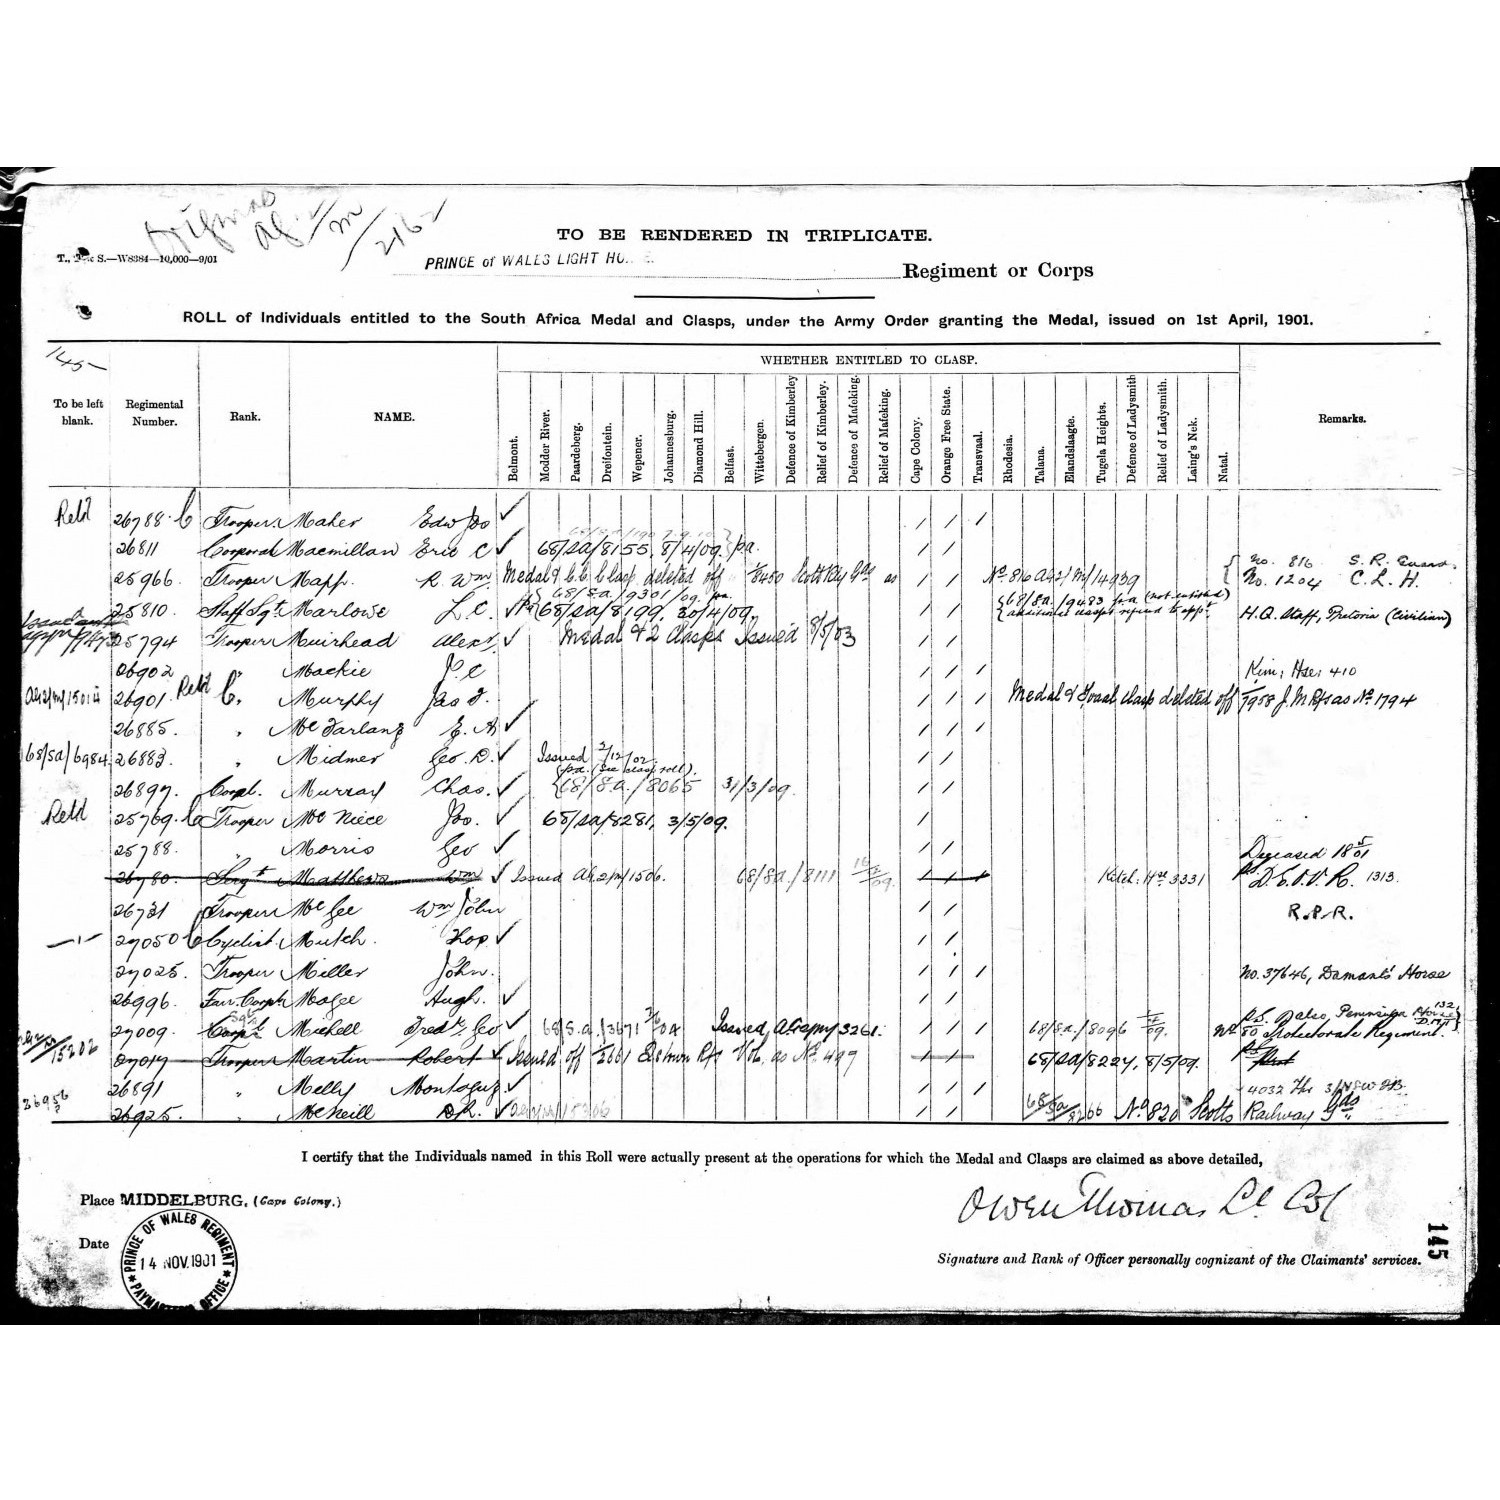 Original
AG. 2/M/2162
TO BE RENDERED IN TRIPLICATE.
S.—W8384—10,000—9/01
PRINCE of WALES LIGHT HO
Regiment or Corps
ROLL of Individuals entitled to the South Africa Medal and Clasps, under the Army Order granting the Medal, issued on 1st April, 1901.
145
WHETHER ENTITLED TO CLASP.
To be left blank. Regimental Number. Rank. NAME. Belmont. Modder River. Paardeberg. Dreifontein. Wepener. Johannesburg. Diamond Hill. Belfast. Wittebergen. Defence of Kimberley Relief of Kimberley. Defence of Mafeking. Relief of Mafeking. Cape Colony. Orange Free State. Transvaal. Rhodesia. Talana. Elandslaagte. Tugela Heights. Defence of Ladysmith Relief of Ladysmith. Laing's Nek. Natal. Remarks.
Retd 26788. C Trooper Maher Edw Jos ✓ / / /
26811 Corporal Macmillan Eric C ✓ 68/SA/8155, 8/4/09. pa. / /
no. 816 S.R. Guards
25966. Trooper Mapp. R. Wm Medal & C.C Clasp deleted off 1/8450 Scott Rly Gds as / / No 816 AG2/M/14939 No. 1204 C.L.H.
68/S.a./9301/09. pa.
25810. Staff Sgt Marlowe L.C. ✓ 68/SA/8199, 30/4/09. / / 68/Sa/9483 (not entitled) additional clasps H.Q. Staff, Pretoria (Civilian)
25794 Trooper Muirhead Alexr. ✓ Medal & 2 Clasps Issued 8/5/03 / /
26902 " Mackie J.C / / / Kim: Hse: 410
AG2/M/15014 26901. Retd C. " Murphy Jas J. / / / Medal & Traal clasp deleted off 1/7958 J. M Rfs as No. 1794
26885. " McFarlane E. A ✓ / / /
68/SA/6984 26883. " Midmer Geo. D. ✓ Issued 2/12/02. / /
(pa. See clasp roll).
26897. Corpl. Murray Chas. ✓ 68/S.a./8065 31/3/09. / /
Retd 25769. C Trooper McNiece Jos. ✓ 68/SA/8281, 3/5/09. /
25788. " Morris Geo ✓ / / Deceased 18/5/01
26780. Sergt Matthews Wm ✓ Issued AG.2/M/1506. 68/S.a./8111 16/3/09. / / / Kitch: Hse 3331 D.E.O.V.R. 1313.
26731 Trooper McGee Wm John / / R.P.R.
27050 C Cyclist. Mutch. Thos ✓ / /
27025. Trooper Miller John. / / / No. 37646, Damant's Horse
26996. Farr. Corpl Magee Hugh. ✓ / /
27009. Corpl Michell Fredk. Geo ✓ 68/S.a./3671 Issued, 3261. / / / 68/S.a./8096 Peninsula Horse 132 Protectorate Regiment.
15202 27017 Trooper Martin Robert ✓ Issued off 1/2661 E Town Rfs Vol. as No. 497 / / 68/SA/8224, 8/5/09.
26891 " Melly Montague ✓ / / / 4032 Tpr 3/NSW I.B.
26925. " McNeill D.R. ✓ / / 68/SA/8266 No. 820 Scotts Railway Gds
I certify that the Individuals named in this Roll were actually present at the operations for which the Medal and Clasps are claimed as above detailed,
Place MIDDELBURG, (Cape Colony.)
Owen Thomas Lt Col
Date
PRINCE OF WALES REGIMENT
14 NOV. 1901
OFFICE
Signature and Rank of Officer personally cognizant of the Claimants' services.
145